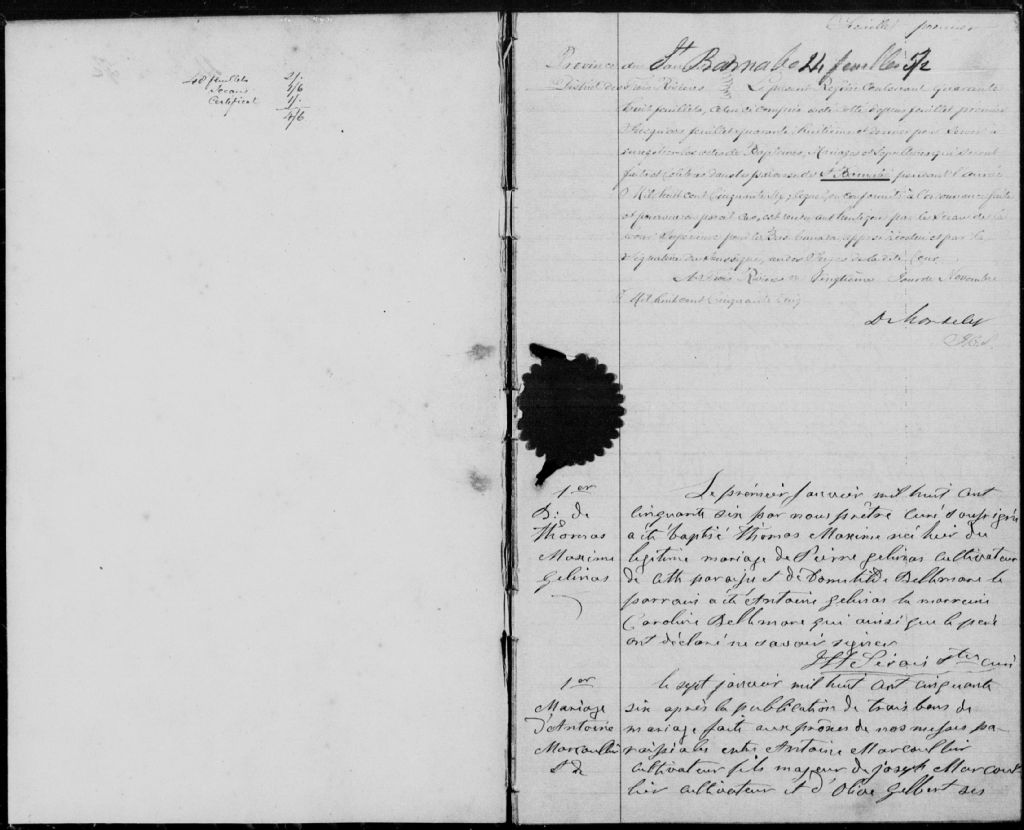 48 feuillets 2/.
Sceau 1/6
Certificat 1/.
4/6
Feuillet premier
Province du
St Barnabe 24 feuilles 5/2
District des Trois Rivières Le présent Registre contenant quarante
huit feuillets, celui ci compris
jusqu'au feuillet quarante huitième et dernier pour servir à
enregistrer les actes de Baptêmes, Mariages et Sépultures qui seront
faits et célébrés dans la paroisse de St Barnabé pendant l'année
Mil huit cent cinquante six, lequel, en conformité à l'ordonnance faite
et pourvue en pareil cas, est rendu authentique par le Sceau de la
Cour Supérieure pour le Bas Canada, apposé et par la
signature du Soussigné, un des Juges de la dite Cour
Trois Rivières ce vingtième jour de Novembre
Mil huit cent cinquante cinq
1er
B: de
Thomas
Maxime
Gelinas
Le premier janvier mil huit cent
cinquante six par nous prêtre curé soussigné
a été baptisé Thomas Maxime né hier du
legitime mariage de Pierre gelinas cultivateur
de cette paroisse et de Domitilde Bellemare le
parrain a été Antoine gelinas la marraine
Caroline Bellemare qui ainsi que le père
ont déclaré ne savoir signer
Ptre curé
1er
Mariage
d'Antoine
Marcoullier
&de
le sept janvier mil huit cent cinquante
six après la publication de trois bans de
mariage faite aux prônes de nos messes pa-
roissiales entre Antoine Marcoullier
cultivateur fils majeur de joseph Marcoul
lier cultivateur et d'Olive Gelbert ses